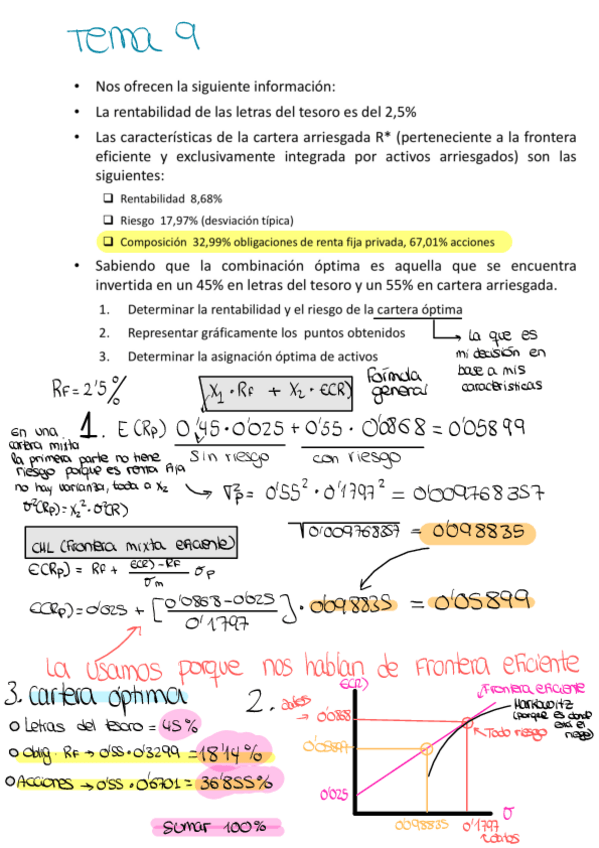 Tema 9
• Nos ofrecen la siguiente información:
• La rentabilidad de las letras del tesoro es del 2,5%
• Las características de la cartera arriesgada R* (perteneciente a la frontera
eficiente y exclusivamente integrada por activos arriesgados) son las
siguientes:
❑ Rentabilidad 8,68%
❑ Riesgo 17,97% (desviación típica)
❑ Composición 32,99% obligaciones de renta fija privada, 67,01% acciones
• Sabiendo que la combinación óptima es aquella que se encuentra
invertida en un 45% en letras del tesoro y un 55% en cartera arriesgada.
1. Determinar la rentabilidad y el riesgo de la cartera óptima
2. Representar gráficamente los puntos obtenidos
3. Determinar la asignación óptima de activos
→ La que es
mi decisión en
base a mis
características
RF = 2'5%
X₁ · RF + X₂ · E(R)
Fórmula
general
1. E(Rp) 0'45 · 0'025 + 0'55 · 0'0868 = 0'05899
sin riesgo
con riesgo
En una
cartera mixta
la primera parte no tiene
riesgo porque es renta fija
no hay varianza, toda a X₂
σ²(Rp) = X₂² · σ²(R)
→ σ²p = 0'55² · 0'1797² = 0'009768357
√0'009768357 = 0'098835
CML (Frontera mixta eficiente)
E(Rp) = RF + E(R) - RF / σm σp
E(Rp) = 0'025 + [0'0868 - 0'025 / 0'1797] · 0'098835 = 0'05899
La usamos porque nos hablan de Frontera eficiente
3. Cartera óptima
o Letras del tesoro = 45%
o Oblig. RF → 0'55 · 0'3299 = 18'14%
o Acciones → 0'55 · 0'6701 = 36'855%
Sumar 100%
2.
E(R)
datos
→ 0'0868
0'05899
0'025
Frontera eficiente
Markowitz
(porque es donde
está el
riesgo)
Todo riesgo
σ
0'098835
0'1797
datos